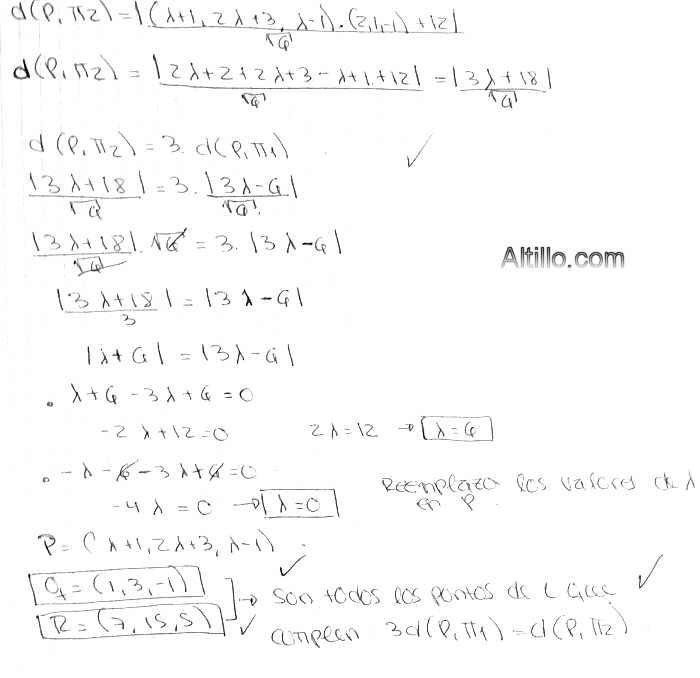 d(P,π2) = |(λ+1, 2λ+3, λ-1).(2,1,-1) + 12| / √6
d(P,π2) = |2λ+2+2λ+3-λ+1+12| / √6 = |3λ+18| / √6
d(P,π2) = 3. d(P,π1)
|3λ+18| / √6 = 3. |3λ-6| / √6
|3λ+18| / √6 . √6 = 3. |3λ-6|
|3λ+18| / 3 = |3λ-6|
|λ+6| = |3λ-6|
• λ+6-3λ+6=0
-2λ+12=0 2λ=12 → λ=6
• -λ-6-3λ+6=0
-4λ=0 → λ=0 Reemplazo los valores de λ
en P.
P = (λ+1, 2λ+3, λ-1).
Q = (1,3,-1)
→ son todos los puntos de L que
R = (7,15,5)
cumplen 3d(P,π1) = d(P,π2)
Altillo.com